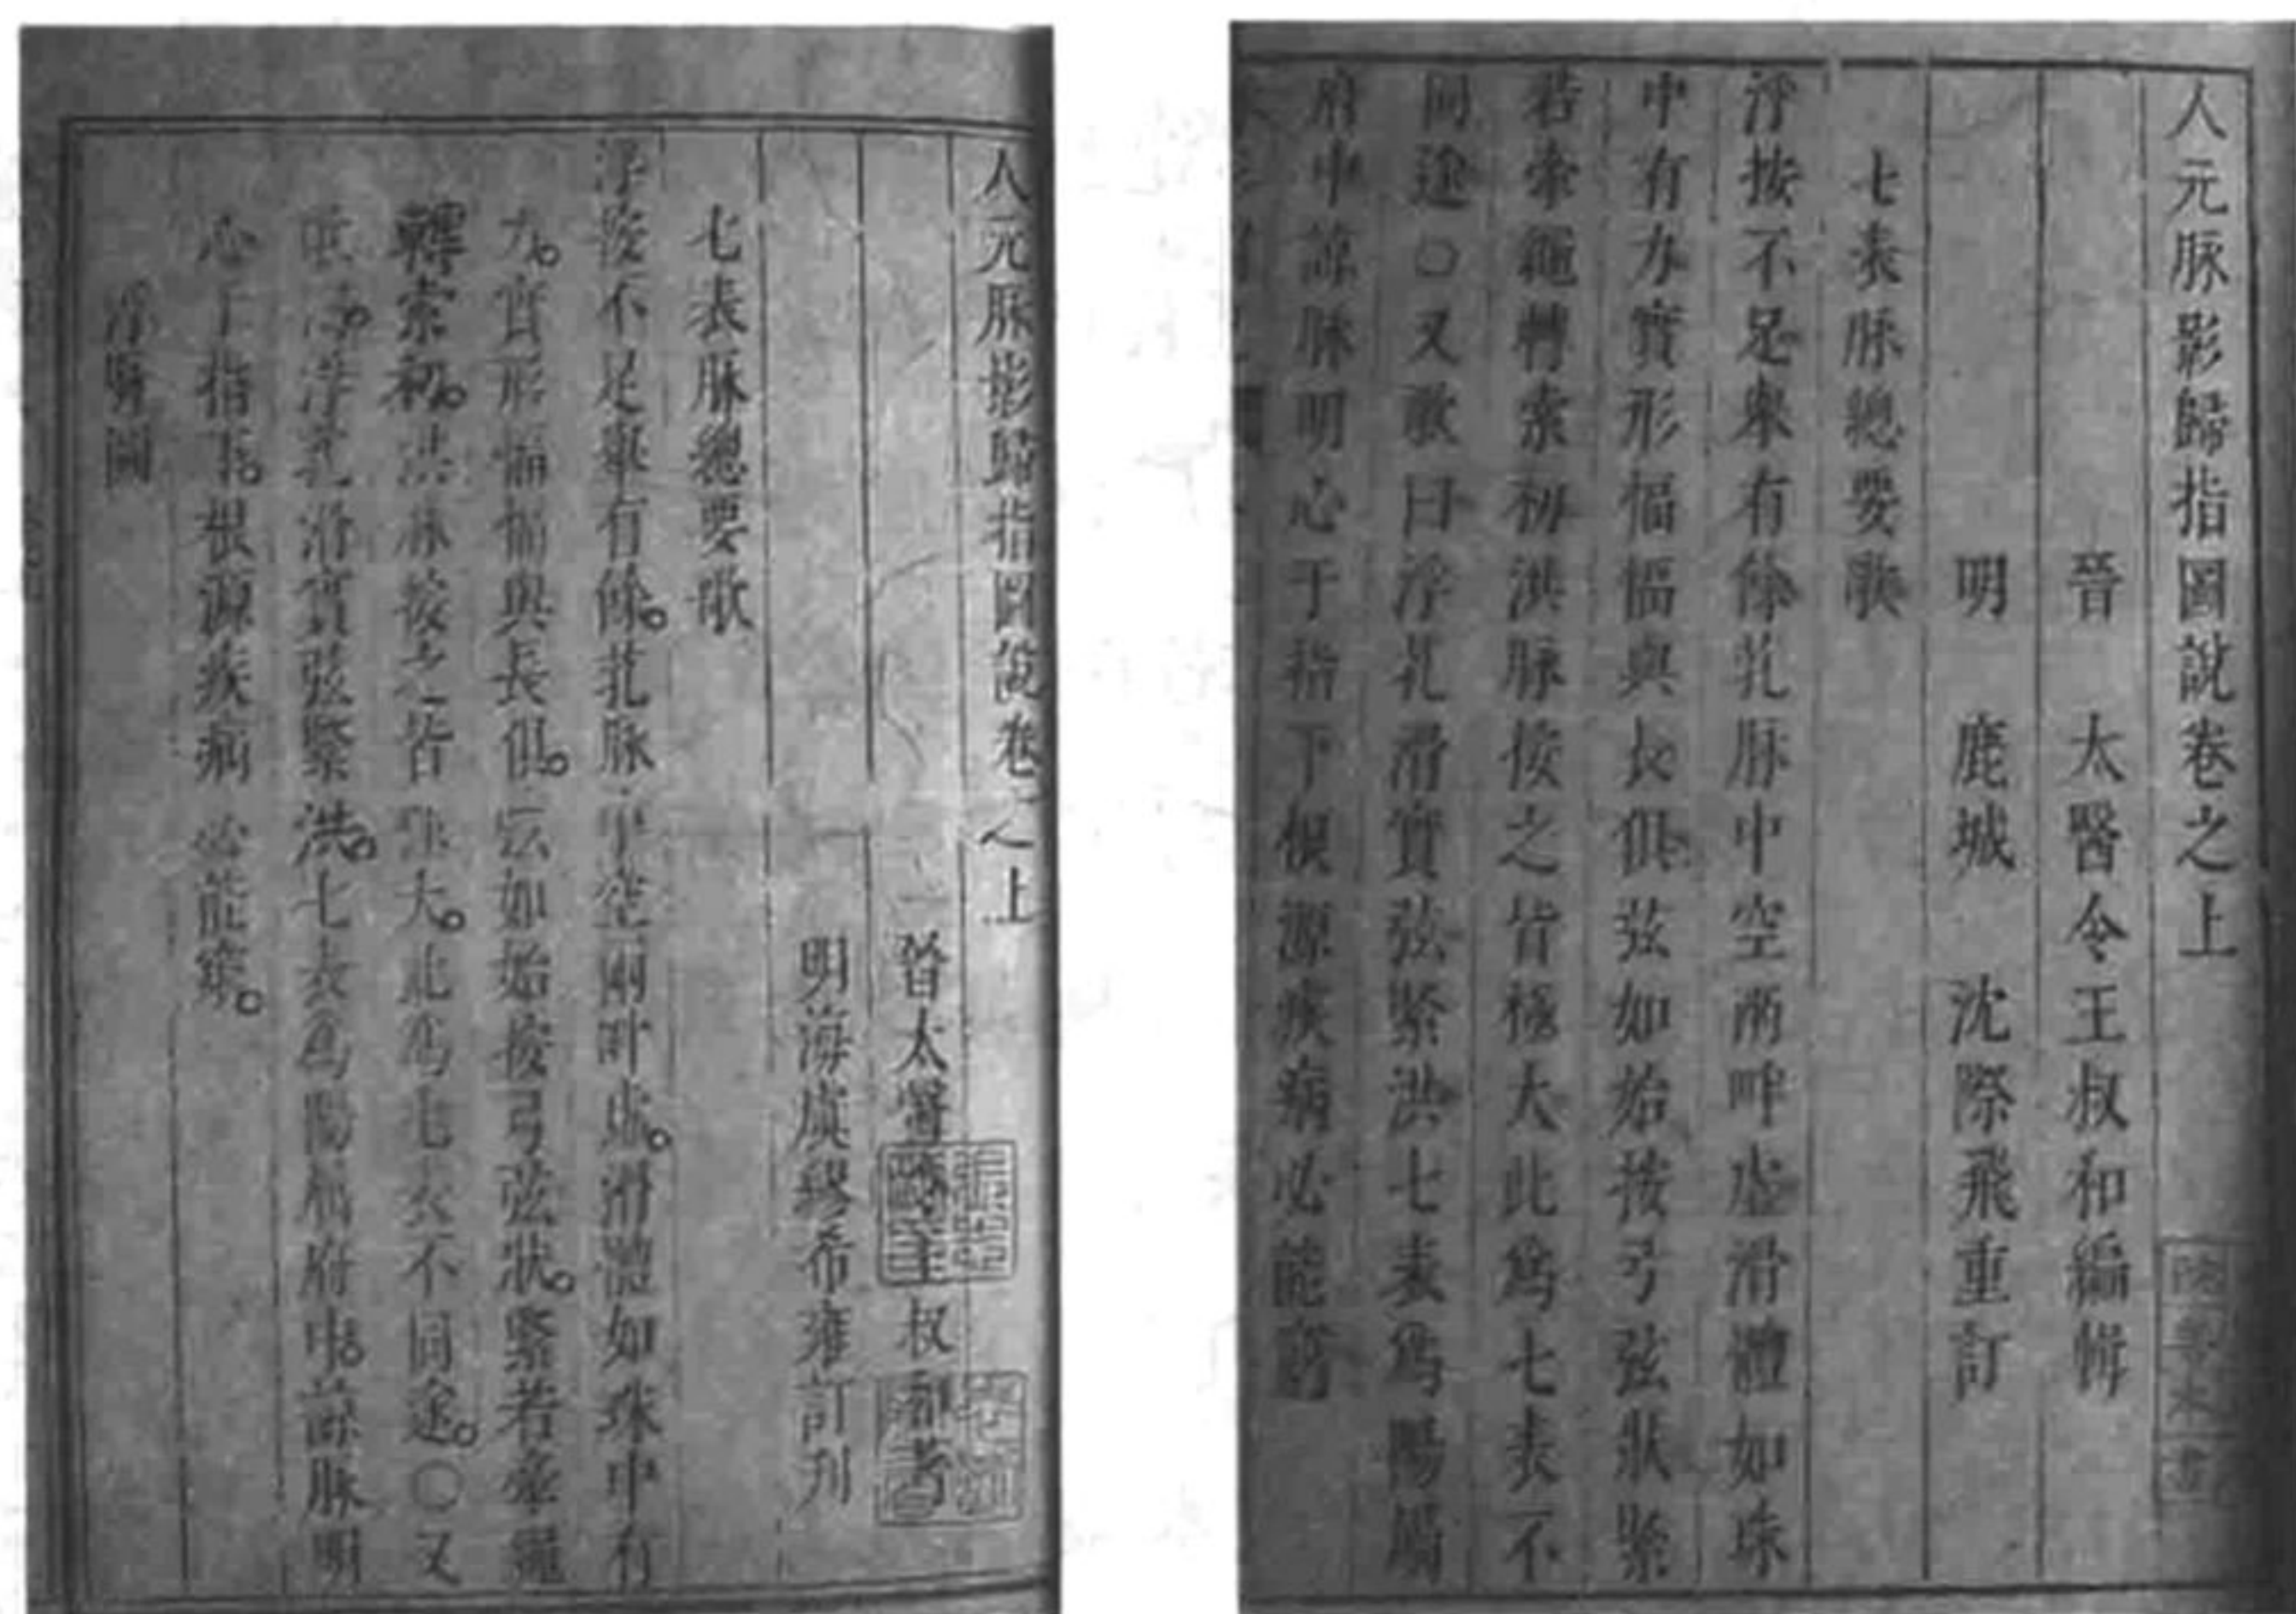 人元脉影歸指圖說卷之上
晉 太醫令王叔和編輯
明 鹿城 沈際飛重訂
七表脉總要歌
浮按不足舉有餘芤脉中空兩畔虛滑體如珠
中有力實形愊愊與長俱弦如始按弓弦狀緊
若牽繩轉索初洪脉按之皆極大此爲七表不
同途○又歌曰浮芤滑實弦緊洪七表爲陽屬
府中諒脉明心于指下根源疾病必能窮
人元脉影歸指圖說卷之上
晉太醫王叔和著
明海虞繆希雍訂刋
七表脉總要歌
浮按不足舉有餘。芤脉中空兩畔虛。滑體如珠中有
力。實形愊愊與長俱。弦如始按弓弦狀。緊若牽繩
轉索初。洪脉按之皆極大。此爲七表不同途。○又
浮芤滑實弦緊洪。七表爲陽屬府中。諒脉明
心于指下。根源疾病必能窮。
浮脉圖